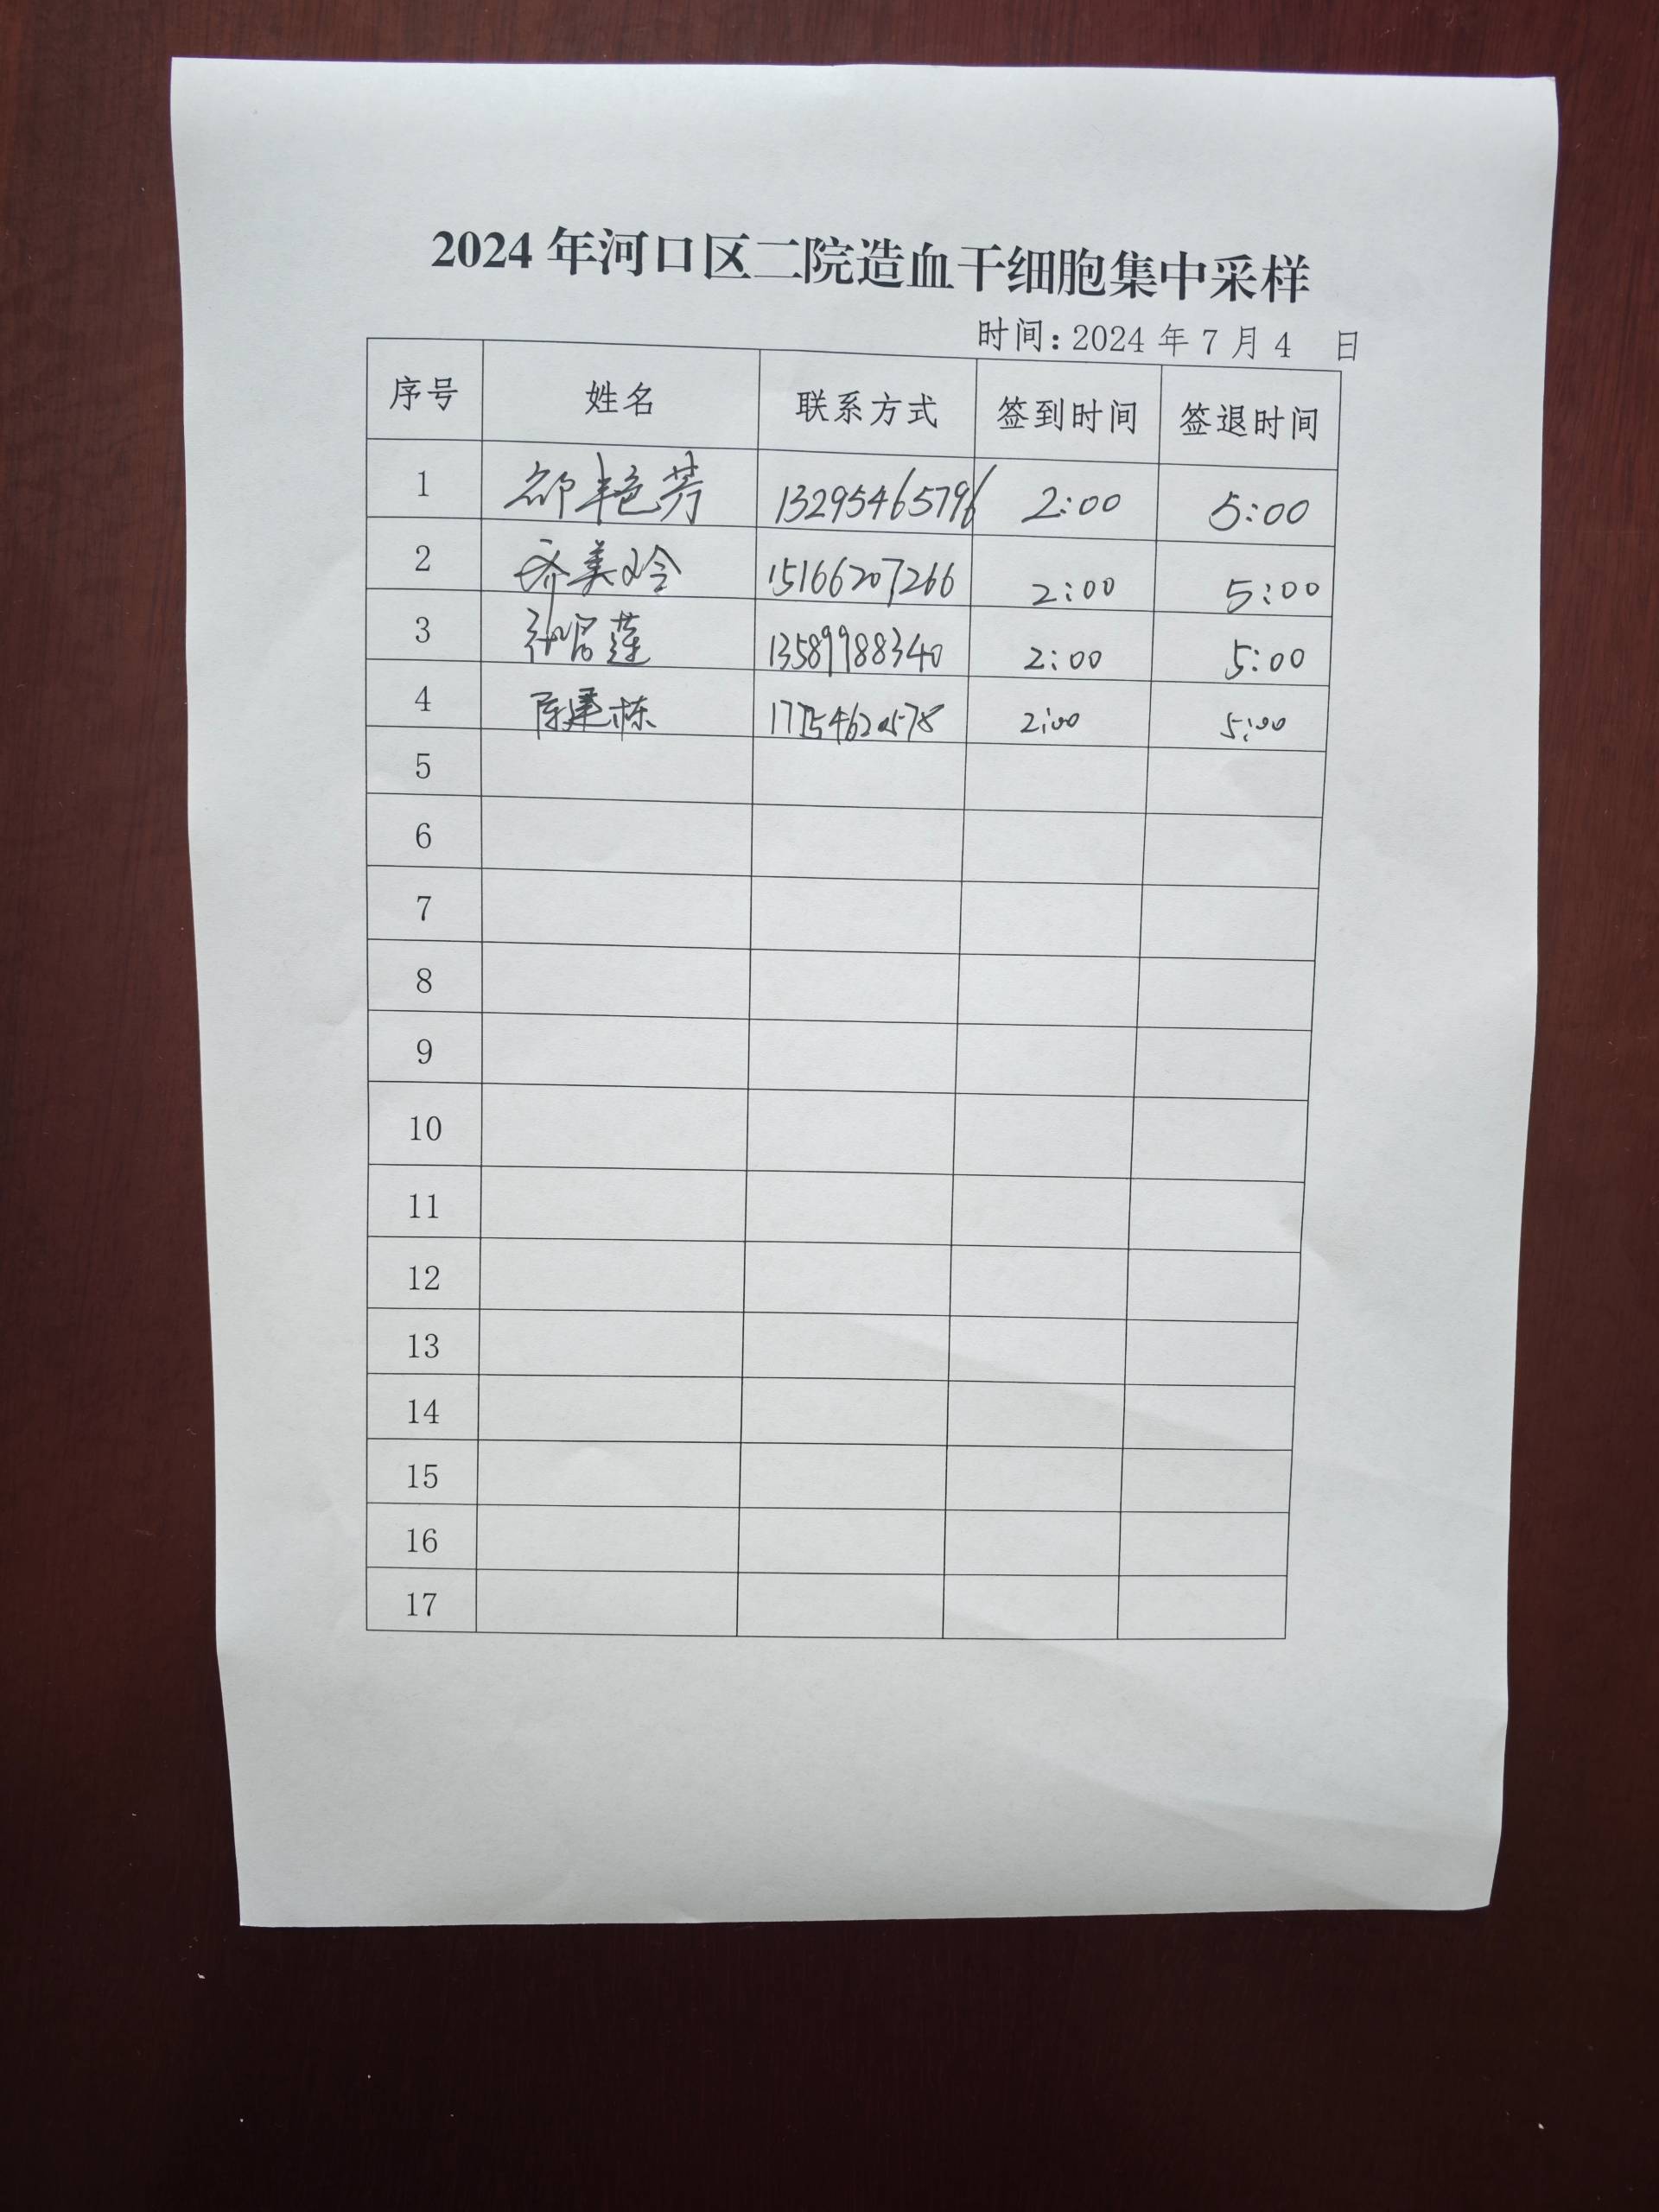 2024年河口区二院造血干细胞集中采样
时间:2024 年 7 月 4 日
序号 姓名 联系方式 签到时间 签退时间
1 邵艳芳 13295465796 2:00 5:00
2 乔美玲 15166207266 2:00 5:00
3 莲 13589988340 2:00 5:00
4 陈建栋 2:00 5:00
5
6
7
8
9
10
11
12
13
14
15
16
17